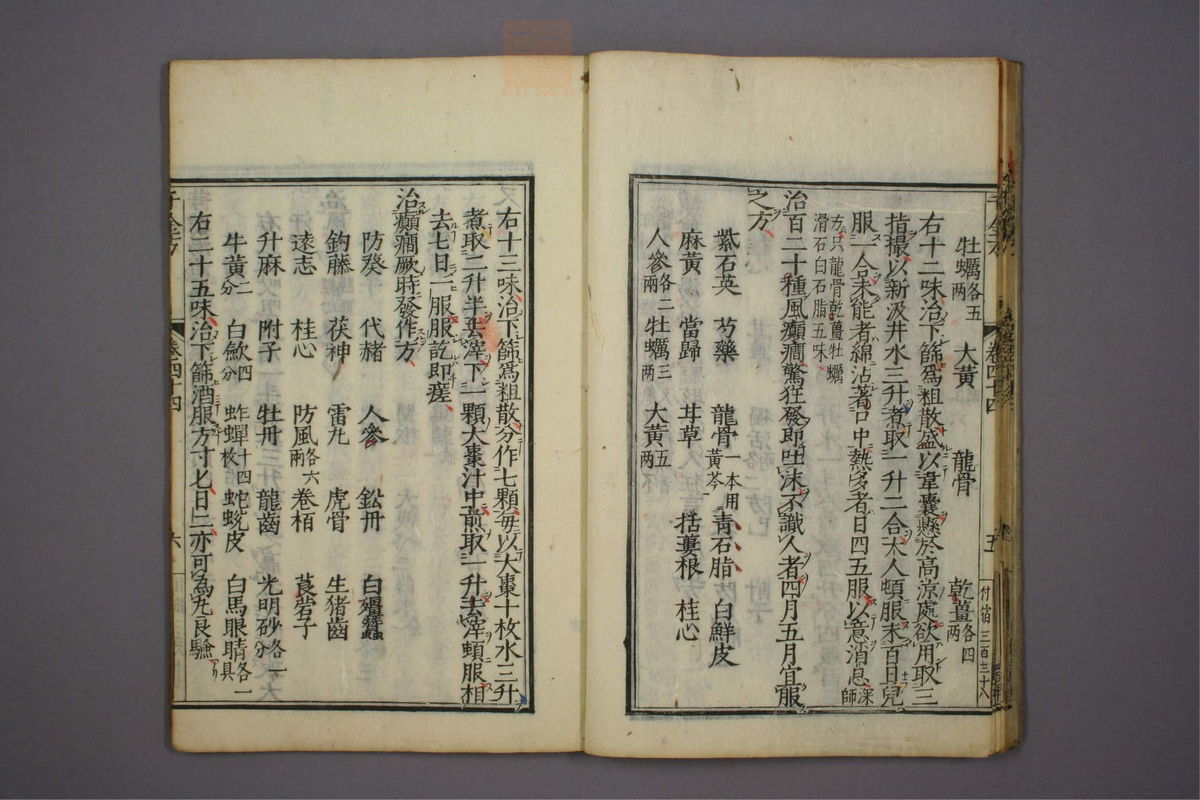 牡蠣各五兩 大黃 龍骨 乾薑各四兩
右十二味治下篩爲粗散盛以韋囊懸於高凉處欲用取三
指撮以新汲井水三升煮取一升二合大人頓服未百日兒
服一合未能者綿沾著口中熱多者日四五服以意消息深師
方只龍骨乾薑牡蠣滑石白石脂五味
治百二十種風癲癇驚狂發即吐沫不識人者四月五月宜服
之方
紫石英 芍藥 龍骨一本用黃芩 青石脂 白鮮皮
麻黃 當歸 甘草 括蔞根 桂心
人參各二兩 牡蠣三兩 大黃五兩
卷四十四 五
右十三味治下篩爲粗散分作七顆每以大棗十枚水三升
煮取二升半去滓下一顆大棗汁中煎取一升去滓頓服相
去七日一服服訖即瘥
治癲癇厥時發作方
防葵 代赭 人參 鈆丹 白殭蠶
鈎藤 茯神 雷丸 虎骨 生猪齒
遠志 桂心 防風各六兩 卷栢 莨菪子
升麻 附子 牡丹 龍齒 光明砂各一分
牛黃二分 白歛四分 蚱蟬十四枚 蛇蛻皮 白馬眼睛各一具
右二十五味治下篩酒服方寸匕日二亦可爲丸良驗
千金方 卷四十四 六